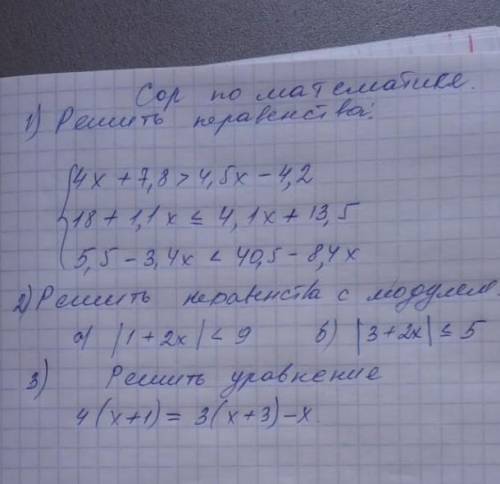 Сор по математике.
1) Решить неравенства:
4x + 7,8 > 4,5x - 4,2
18 + 1,1x ≤ 4,1x + 13,5
5,5 - 3,4x < 40,5 - 8,4x
2) Решить неравенства с модулем
а) |1 + 2x| < 9 б) |3 + 2x| ≤ 5
3) Решить уравнение
4(x+1) = 3(x+3) - x